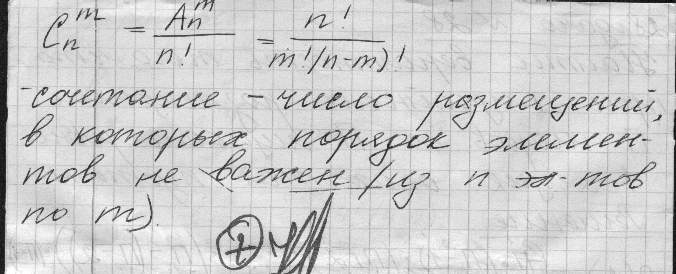 C_n^m = A_n^m / n! = n! / m!(n-m)!
-сочетание - число размещений,
в которых порядок элемен-
тов не важен (из n эл-тов
по m).
+